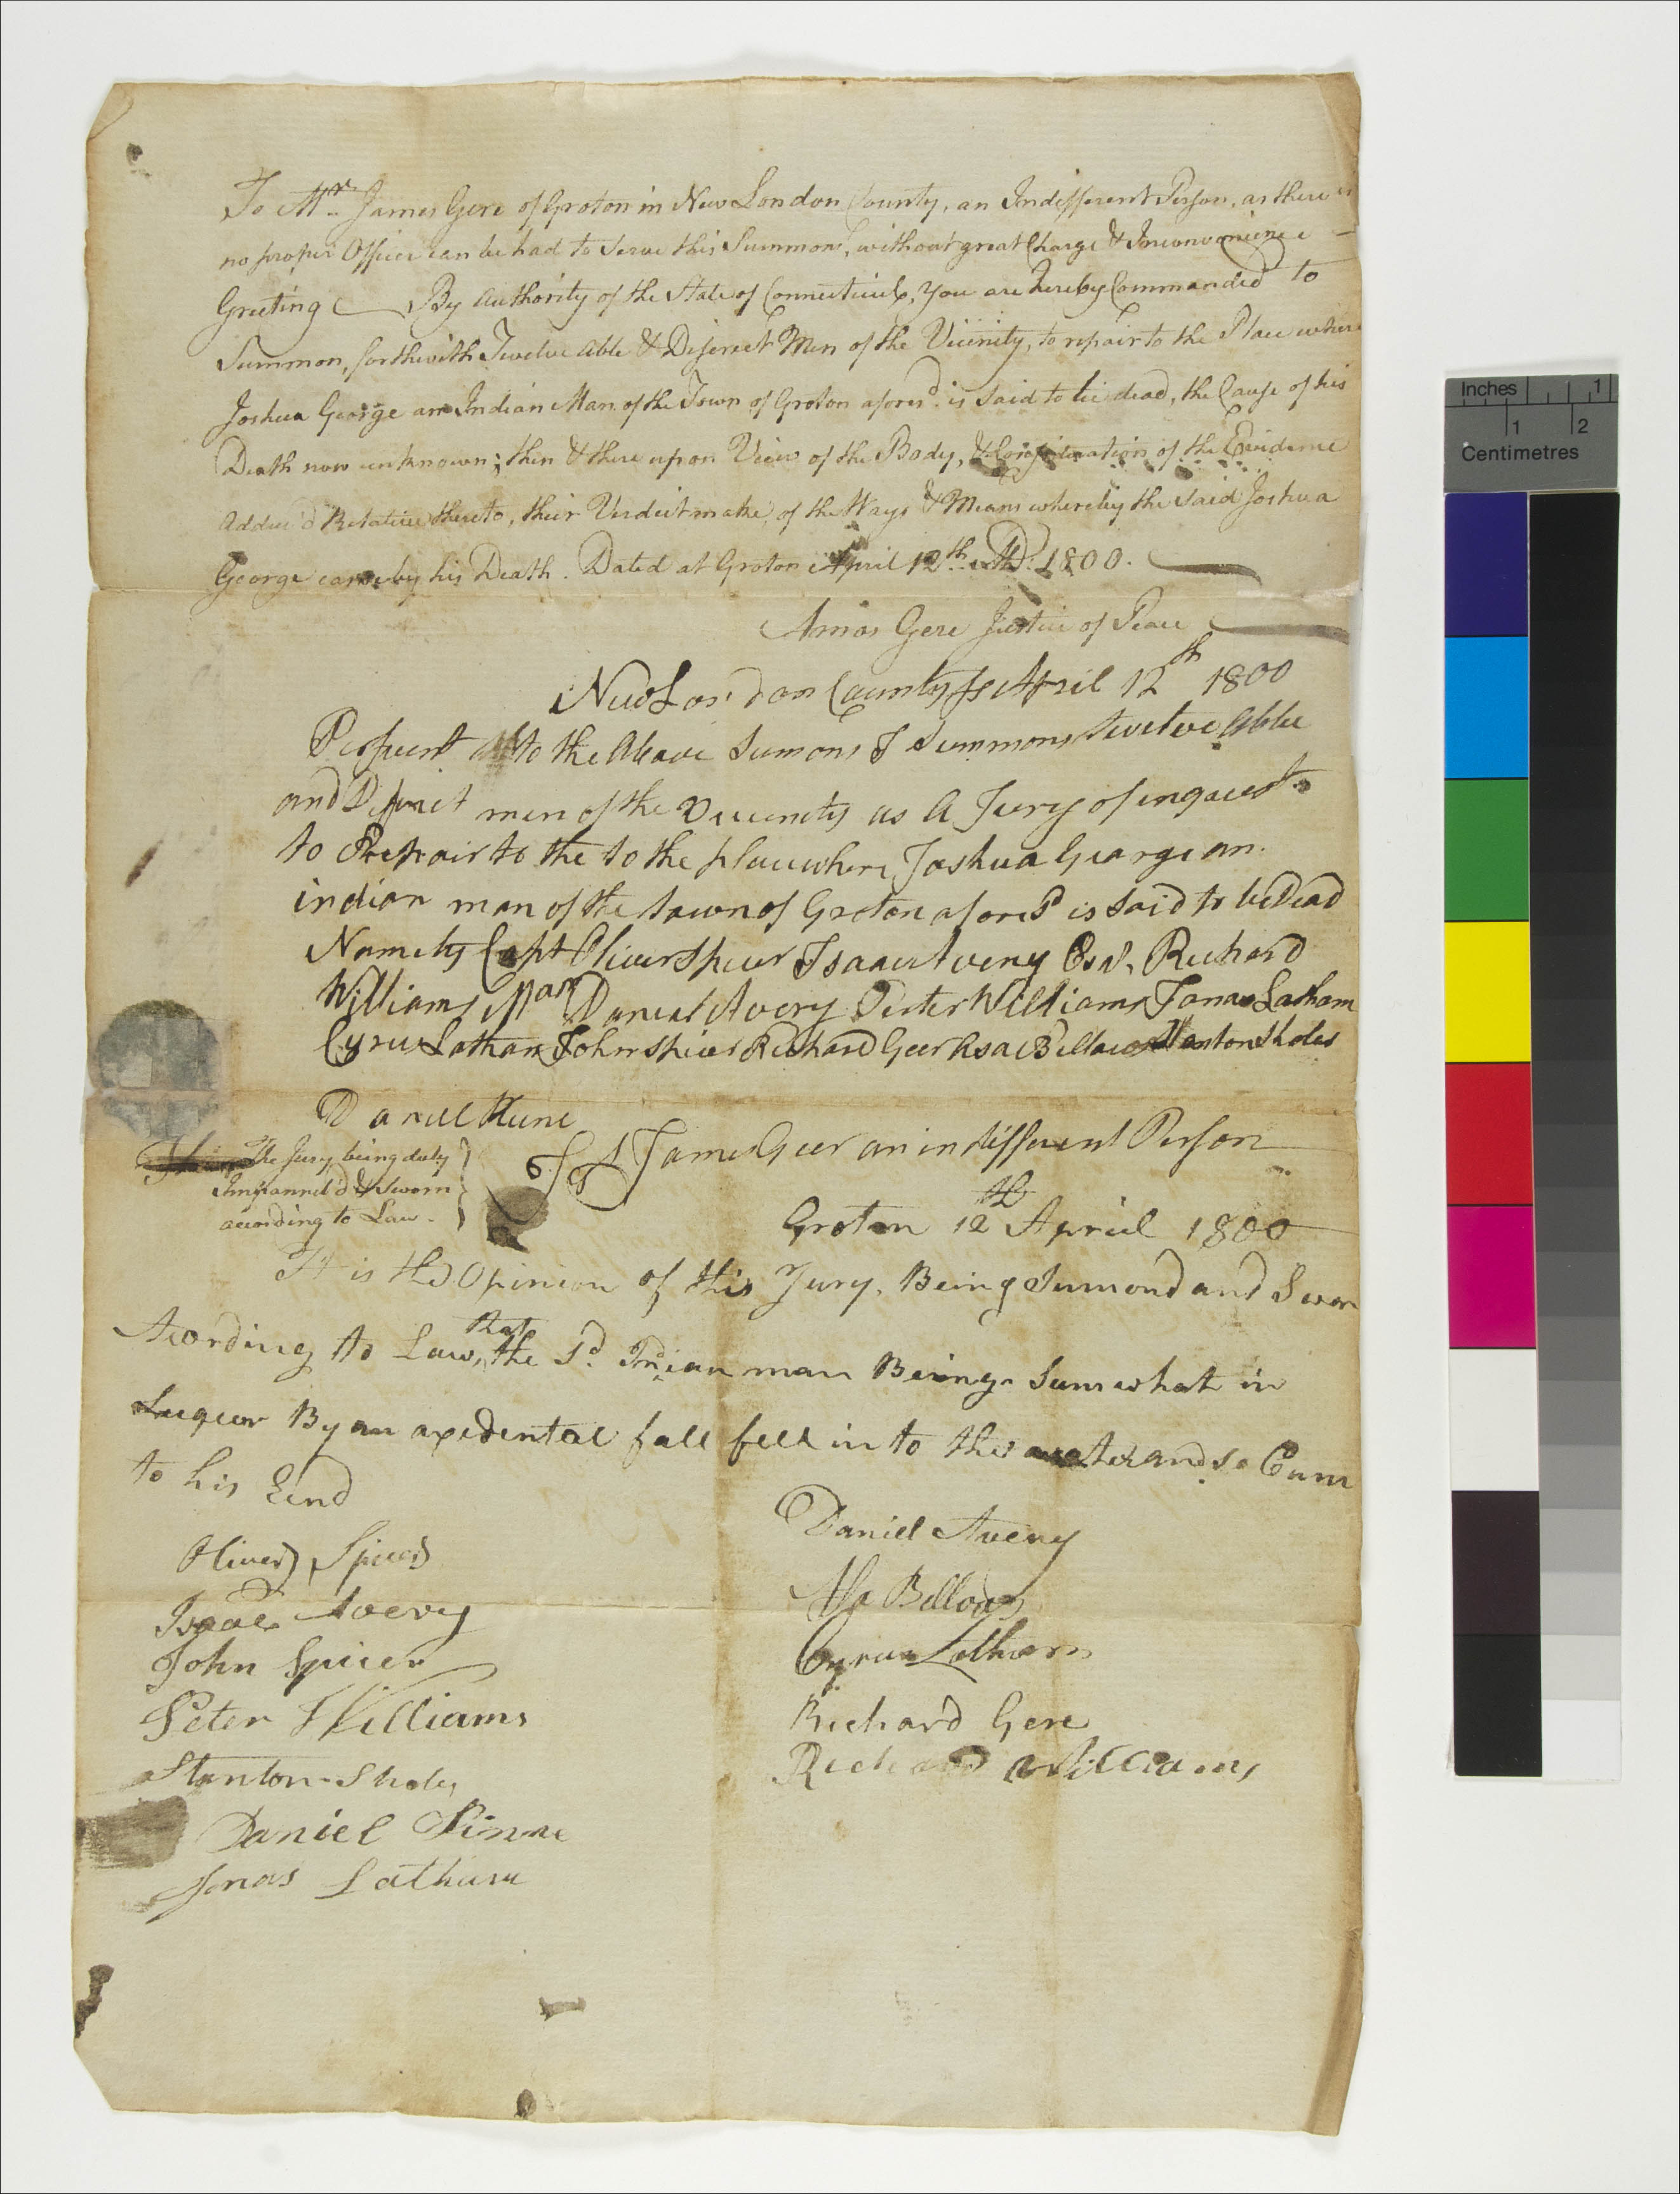 To Mr. James Gere of Groton in New London County, an Indifferent Person, as there is
no proper Officer can be had to Serve this Summons, without great Charge & Inconvenience
Greeting By Authority of the State of Connecticut, You are hereby Commanded to
Summon, forthwith Twelve Able & Discreet Men of the Vicinity, to repair to the Place where
Joshua George an Indian Man of the Town of Groton afores.d is Said to lie dead, the Cause of his
Death now unknown; then & there upon View of the Body, & Consideration of the Evidence
Adduc'd Relative thereto, their Verdict make, of the Ways & Means whereby the Said Joshua
George came by his Death. Dated at Groton April 12th. AD. 1800.
Amos Gere Justice of Peace
New London County ss April 12th 1800
Persuent to the Above Sumons I Summons twelve Able
and Discreit men of the Vicenety as A Jury of inquest
to Repair to the to the place where Joshua George an
indian man of the town of Groton afores d is Said to be Dead
Namely Capt Oliver Spicer Isaac Avery Esqr. Richard
Williams Daniel Avery Peter Williams Jonas Latham
Cyrus Latham John Spicer Richard Geer Asa Bellows Stanton Sholes
Daniell
The Jury being duly
Impannel'd & Sworn
according to Law.
James Geer an indifferent Person
Groton 12th April 1800
It is the Opinion of this Jury, Being Sumond and Swor
Acording to Law, that the Sd. Indian man Being Sumwhat in
Luquor By an axedental fall fell in to the water and so Cum
to his End
Oliver Spicer
Isaac Avery
John Spicer
Peter Williams
Stanton Sholes
Daniel
Jonas Latham
Daniel Avery
Asa Bellows
Cyrus Latham
Richard Gere
Richard Williams
Inches 1
1 2
Centimetres